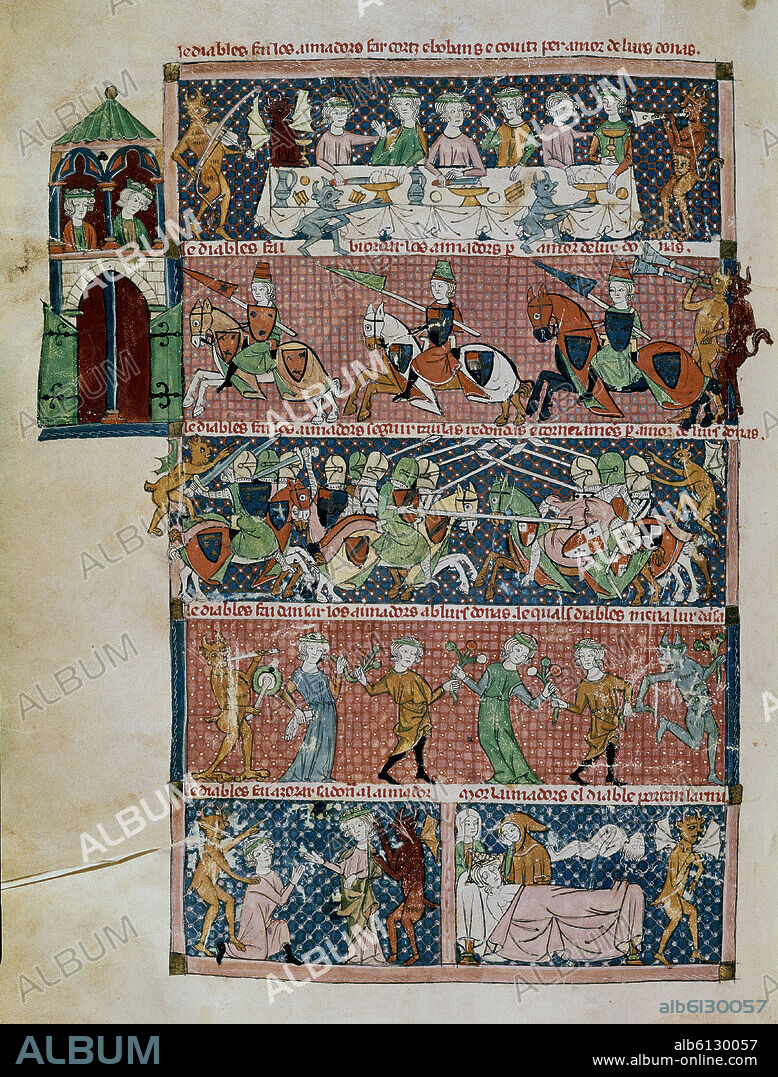 le diables fai los aimadors far cortz e bobans e covitz per amor de lurs donas.
le diables fai biordar los aimadors p amor de lur donas.
le diables fai los aimadors seguir taulas redondas e torneiamens p amor de lurs donas.
le diables fai dansar los aimadors ab lurs donas. le quals diables mena lur dansa
le diables fai azorar sa dona al aimador
mor l aimadors el diable porton l arma
ALBUM
alb6130057
ALBUM
alb6130057
www.album-online.com